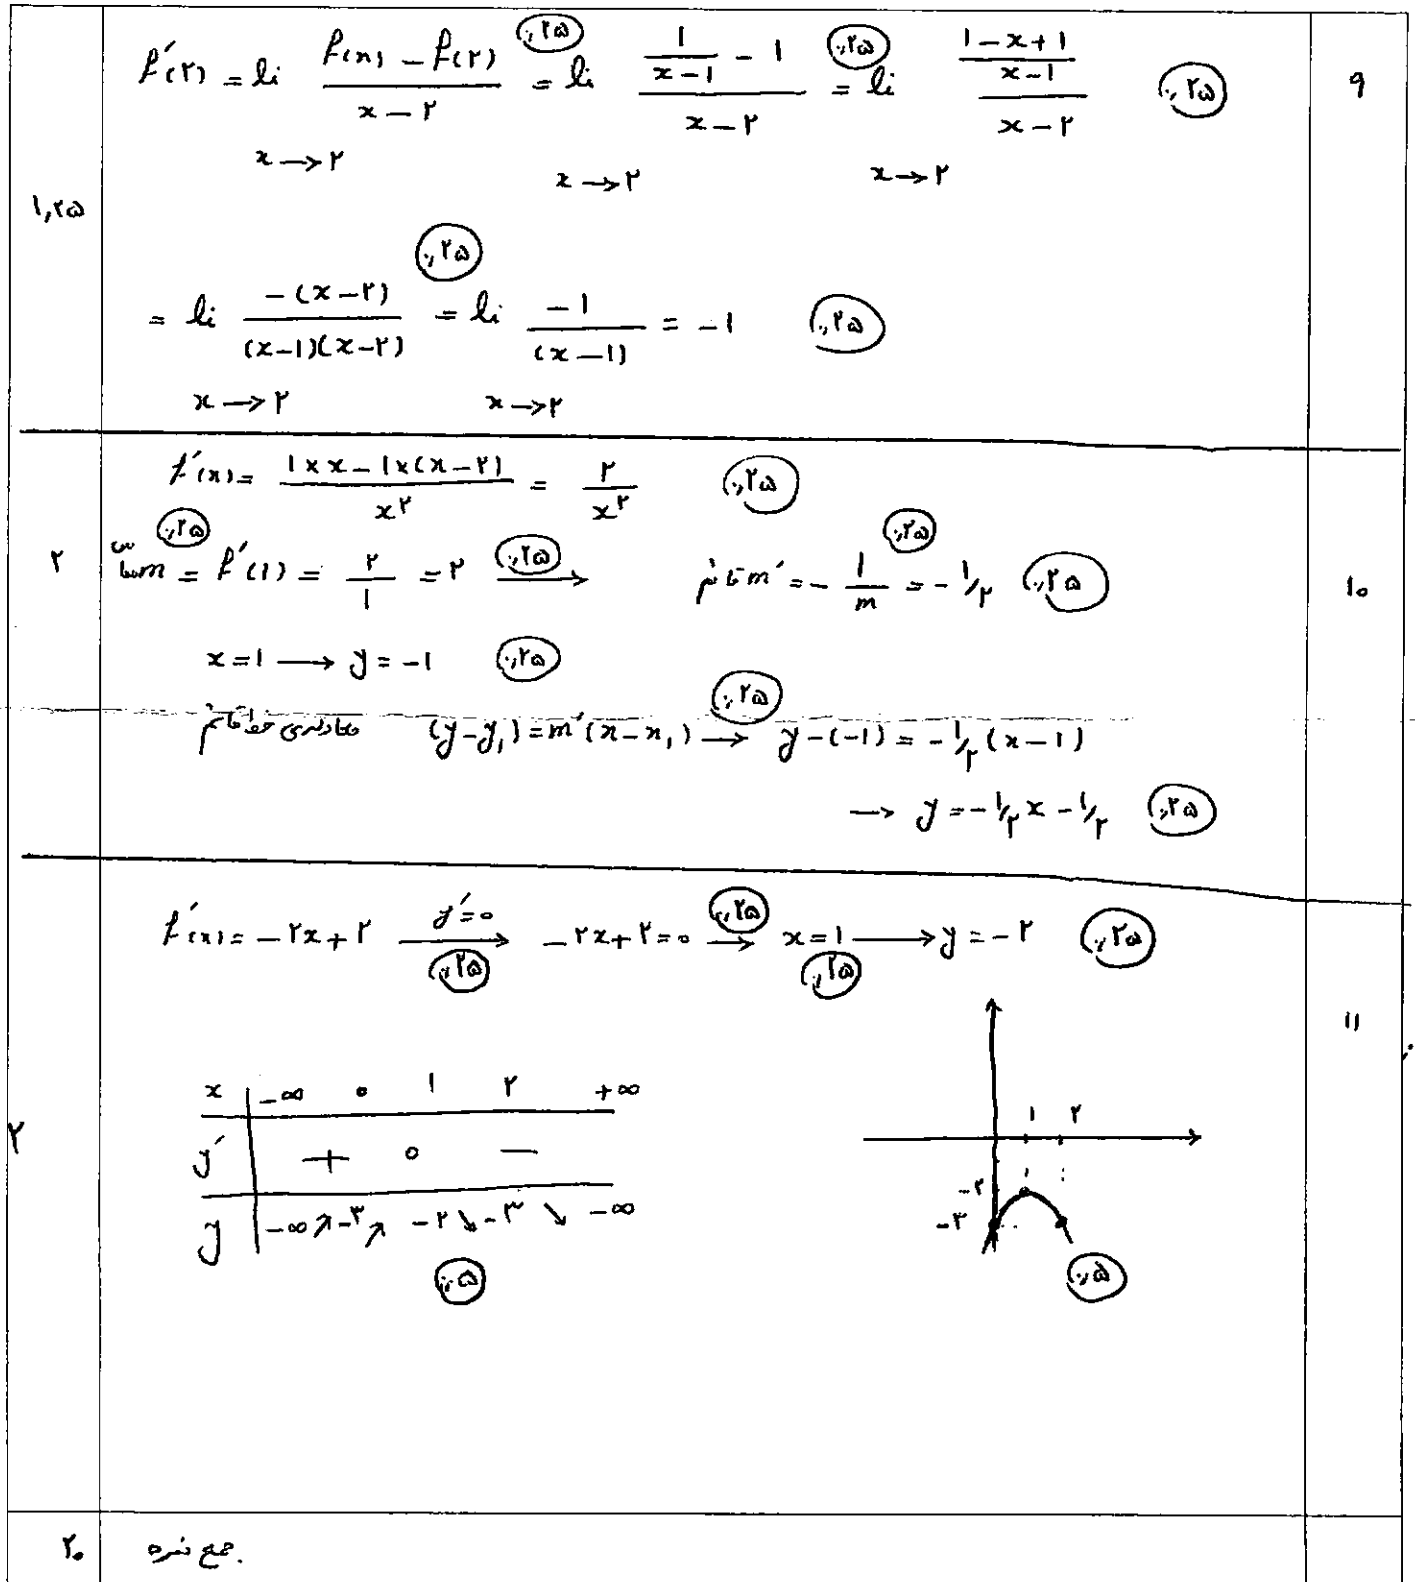 ۹
f′(۲) = li f(x) − f(۲) / x − ۲ (۰,۲۵) = li (۱/(x−۱) − ۱) / (x − ۲) (۰,۲۵) = li ((۱−x+۱)/(x−۱)) / (x − ۲) (۰,۲۵)
x → ۲ x → ۲ x → ۲
۱,۲۵
= li −(x−۲) / (x−۱)(x−۲) (۰,۲۵) = li −۱ / (x−۱) = −۱ (۰,۲۵)
x → ۲ x → ۲
f′(x) = (۱×x − ۱×(x−۲)) / x^۲ = ۲ / x^۲ (۰,۲۵)
۱۰
۲
مماس m (۰,۲۵) = f′(۱) = ۲/۱ = ۲ (۰,۲۵) → قائم m′ = −۱/m (۰,۲۵) = −۱/۲ (۰,۲۵)
x = ۱ → y = −۱ (۰,۲۵)
معادله‌ی خط قائم (y−y₁) = m′(x−x₁) (۰,۲۵) → y−(−۱) = −۱/۲ (x−۱)
→ y = −۱/۲ x − ۱/۲ (۰,۲۵)
f′(x) = −۲x+۲ y′=۰ → (۰,۲۵) −۲x+۲=۰ (۰,۲۵) → x=۱ (۰,۲۵) → y = −۲ (۰,۲۵)
۱۱
۲
x | −∞ ۰ ۱ ۲ +∞
y′ | + ۰ −
y | −∞ ↗ −۳ ↗ −۲ ↘ −۳ ↘ −∞
(۰,۵)
۱ ۲
−۲
−۳
(۰,۵)
۲۰ جمع نمره